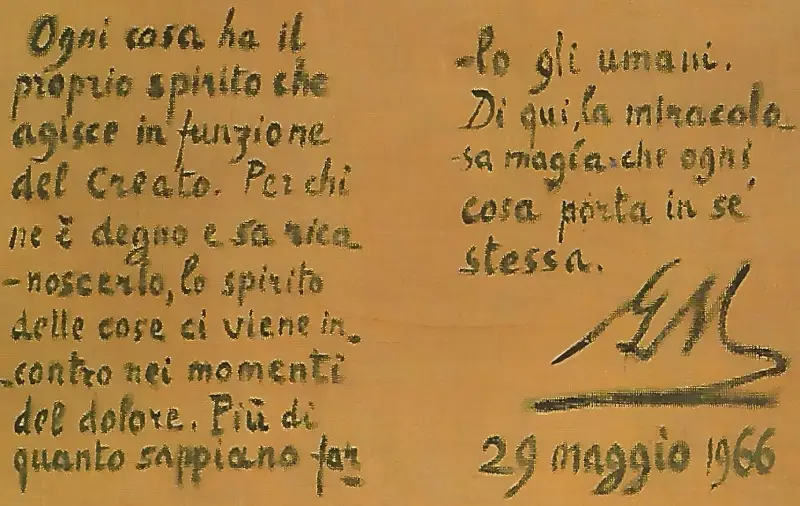 Ogni cosa ha il
proprio spirito che
agisce in funzione
del Creato. Per chi
ne è degno e sa rica
-noscerlo, lo spirito
delle cose ci viene in-
-contro nei momenti
del dolore. Più di
quanto sappiano far
-lo gli umani.
Di qui, la miracolo-
-sa magia che ogni
cosa porta in sé
stessa.
GM
29 maggio 1966